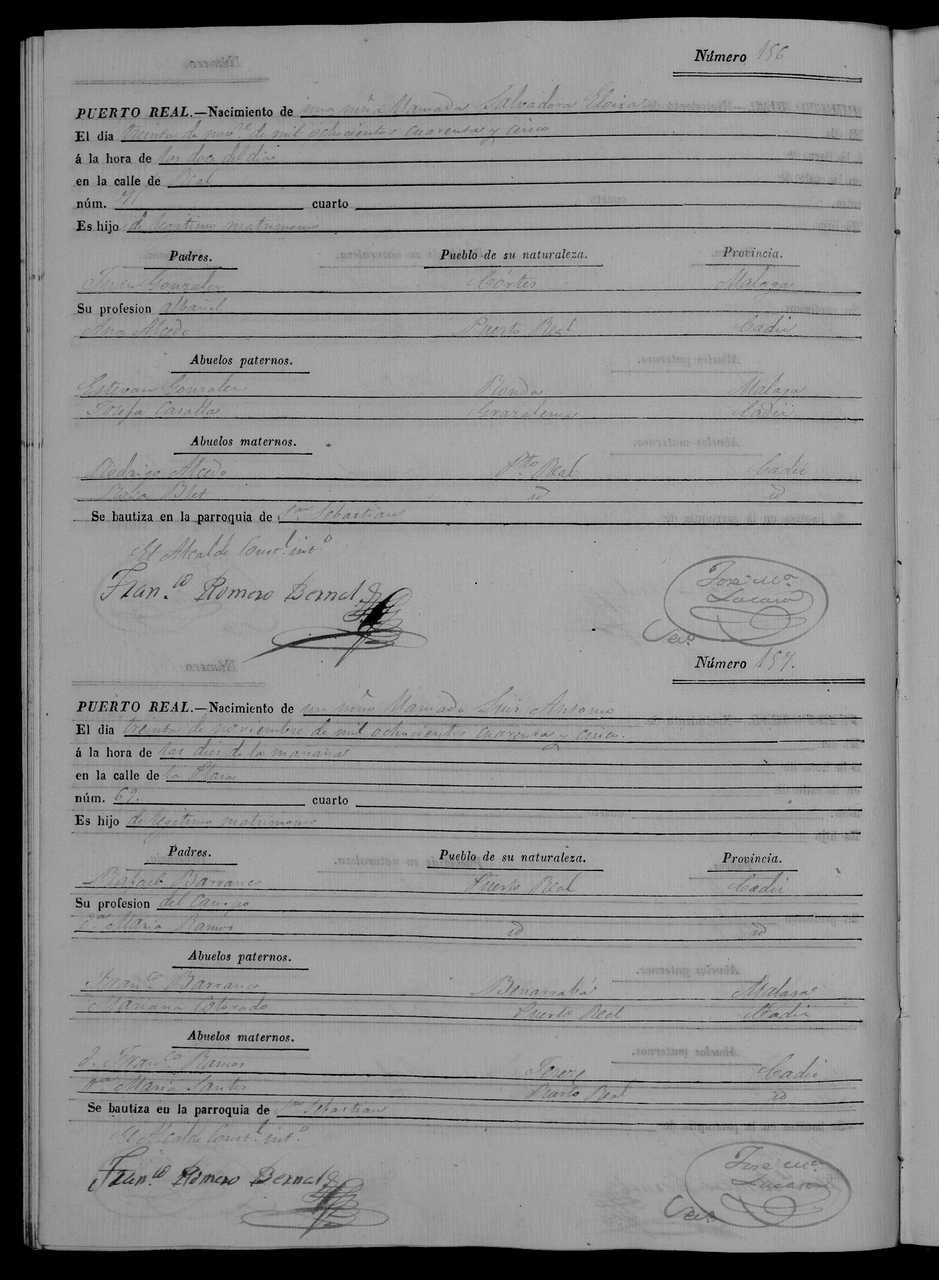 Número 156
PUERTO REAL.—Nacimiento de una niña llamada Salvadora Eloisa
El dia treinta de nov.e de mil ochocientos cuarenta y cinco
á la hora de las doce del dia
en la calle de Real
núm. cuarto
Es hijo de legitimo matrimonio
Padres. Pueblo de su naturaleza. Provincia.
Gonzalez Córtes Malaga
Su profesion albañil
Ana Alcedo Puerto Real Cadiz
Abuelos paternos.
Estevan Gonzalez Ronda Malaga
Josefa Casallas Grazalema Cadiz
Abuelos maternos.
Rodrigo Alcedo Pto Real Cadiz
id id
Se bautiza en la parroquia de Sn Sebastian
El Alcalde Const.l int.o
Fran.co Romero Bernal
José Ma.
Lucario
Seco.
Número 157.
PUERTO REAL.—Nacimiento de un niño llamado Luis Antonio
El dia treinta de noviembre de mil ochocientos cuarenta y cinco.
á la hora de las diez de la mañana
en la calle de la Plaza
núm. 69. cuarto
Es hijo de legitimo matrimonio
Padres. Pueblo de su naturaleza. Provincia.
Rafael Barranco Puerto Real Cadiz
Su profesion del campo
D.a Maria Ramos id id
Abuelos paternos.
Fran.co Barranco Benarrabá Malaga
Mariana Colorado Puerto Real Cadiz
Abuelos maternos.
D. Fran.co Ramos Jerez Cadiz
D.a Maria Santos Puerto Real id
Se bautiza en la parroquia de Sn Sebastian
El Alcalde Const.l int.o
Fran.co Romero Bernal
José Ma.
Lucario
Seco.